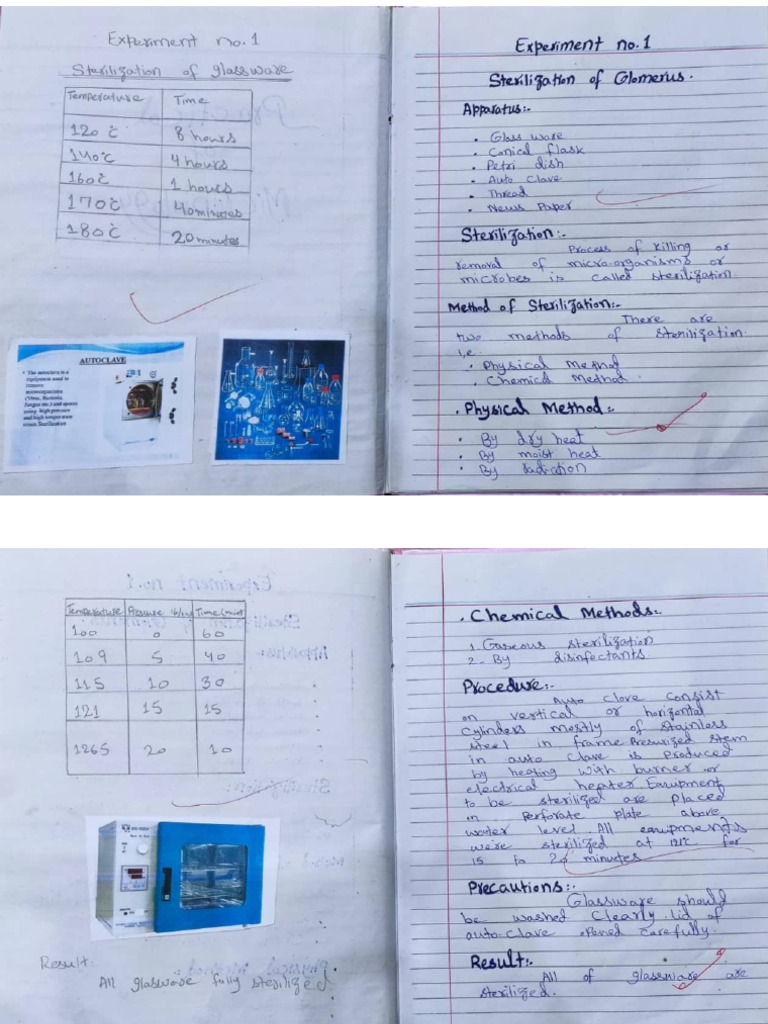 Experiment no.1
Sterilization of glassware
Temperature Time
120 c 8 hours
140°c 4 hours
160c 1 hours
170c 40 minutes
180c 20 minutes
AUTOCLAVE
• The autoclave is a
equipment used to
remove
microorganisms
(Virus, Bacteria,
fungus etc.) and spores
using high pressure
and high temperature
steam Sterilization
Experiment no.1
Sterilization of Glomerus.
Apparatus:-
• Glass ware
• Conical flask
• Petri dish
• Auto Clave
• Thread
• News Paper
Sterilization:-
Process of killing or
removal of micro-organisms or
microbes is called sterilization.
Method of Sterilization:-
There are
two methods of sterilization.
i.e.
• Physical Method
• Chemical Method
• Physical Method:-
• By dry heat
• By moist heat
• By radiation
Temperature Pressure Time
100 0 60
109 5 40
115 10 30
121 15 15
1265 20 10
Result:
All glasware fully sterilized
• Chemical Methods:-
1. Gaseous sterilization
2. By disinfectants
Procedure:-
Auto clove consist
on vertical or horizontal
cylinders mostly of stainless
steel in frame Preswrized stem
in auto clave is produced
by heating with burner or
electrical heater Eauipment
to be sterilized are placed
in perforate plate above
water level. All eauipments
were sterilized at 121c for
15 to 20 minutes
Precautions:-
Glassware should
be washed clearly. lid of
auto-clave opened carefully.
Result:-
All of glassware are
sterilized.